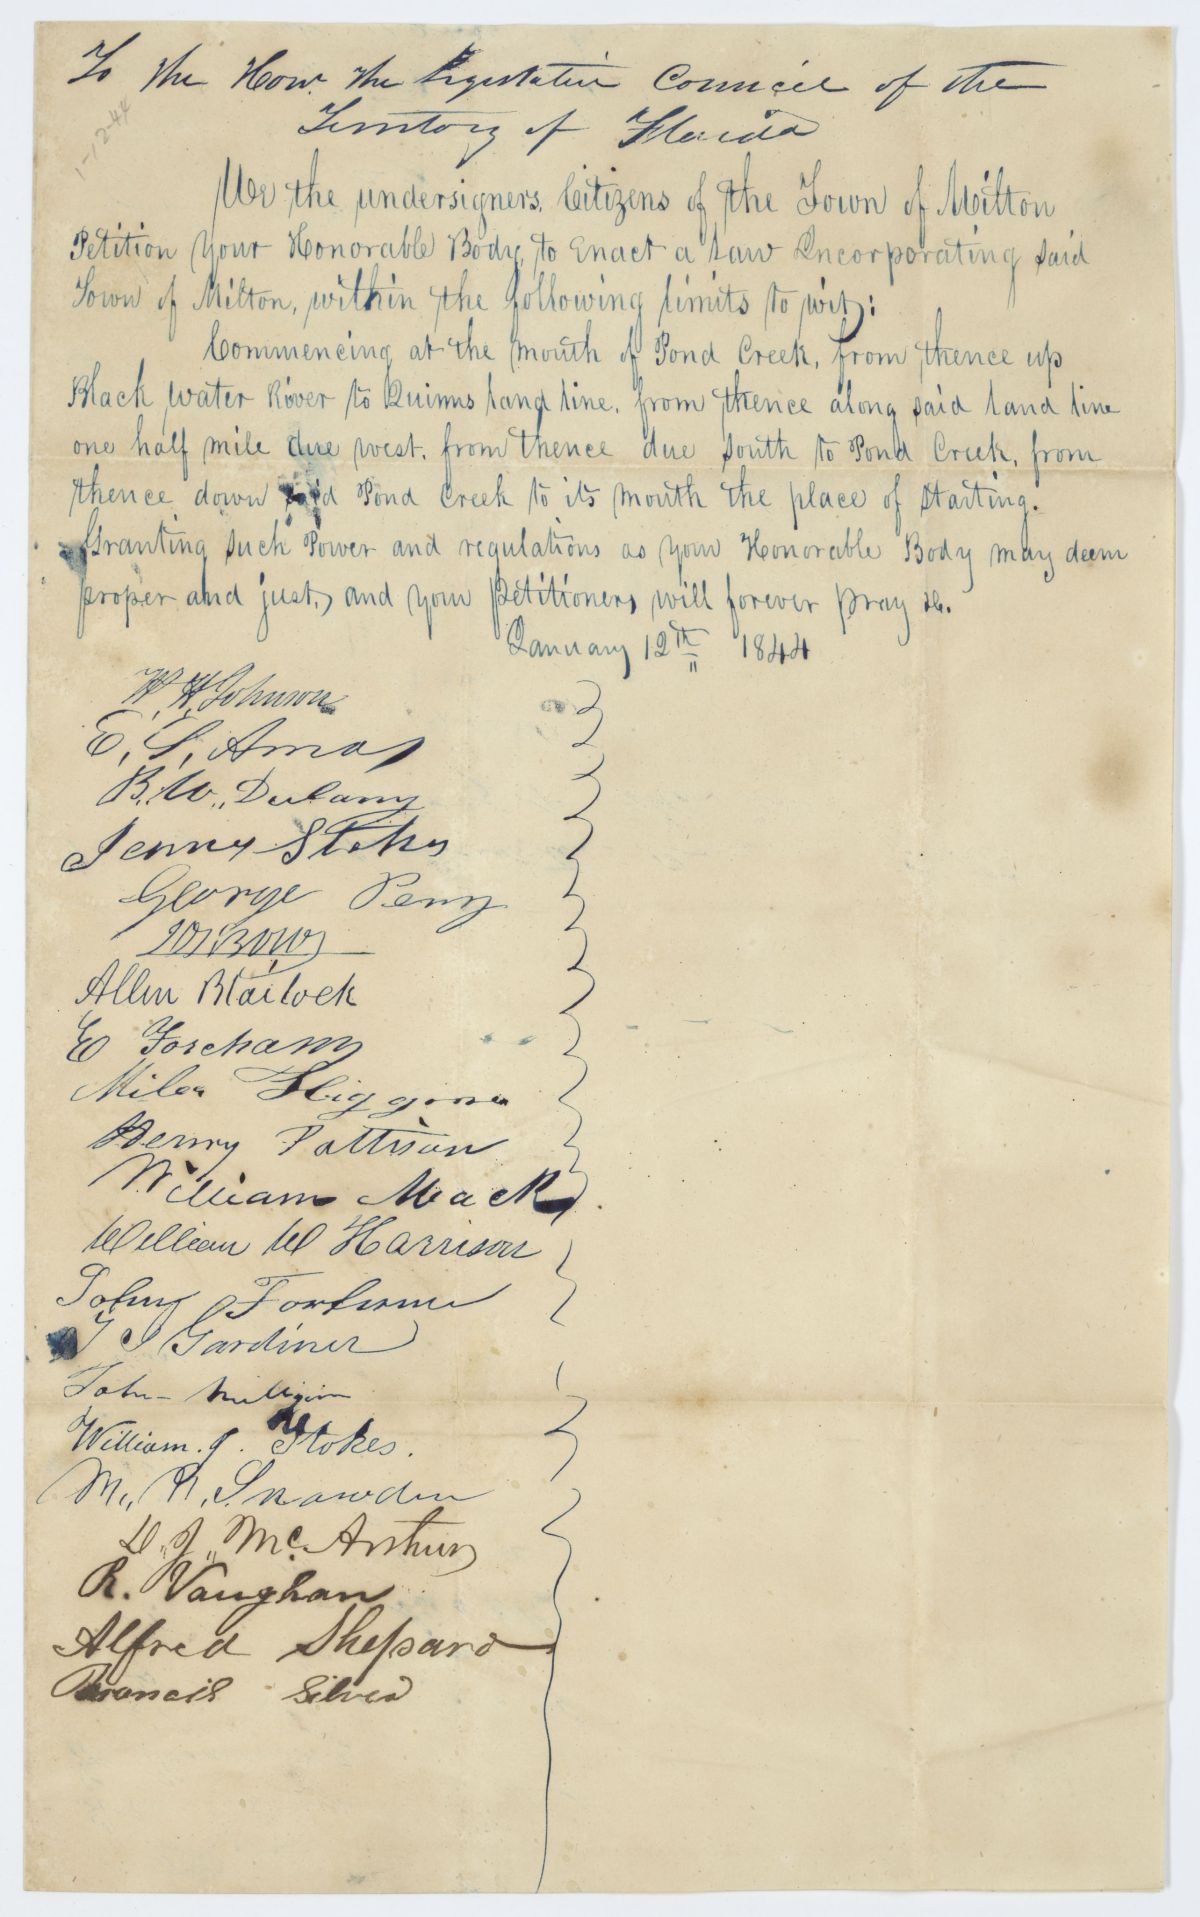 To the Hon. the Legislative Council of the
Territory of Florida
1-12-44
We the undersigners, Citizens of the Town of Milton
Petition your Honorable Body, to Enact a Law Incorporating said
Town of Milton, within the following limits to wit;
Commencing at the mouth of Pond Creek, from thence up
Black water River to Quinns land line, from thence along said land line
one half mile due west, from thence due south to Pond Creek, from
thence down said Pond Creek to its mouth the place of starting.
Granting such Power and regulations as your Honorable Body may deem
proper and just, and your Petitioners will forever pray &c.
January 12th 1844
W. W. Johnson
E. S. Amos
B. W. Dulany
Stokes
George Perry
Allen Blailock
E Forcham
Miles Higgins
Henry Pattison
William Mack
William W Harrison
John Fortune
T J Gardiner
John Milligin
William. J. Stokes.
M. R. Snowden
D. J. McArthur
R. Vaughan
Alfred Shepard
Francis Silver